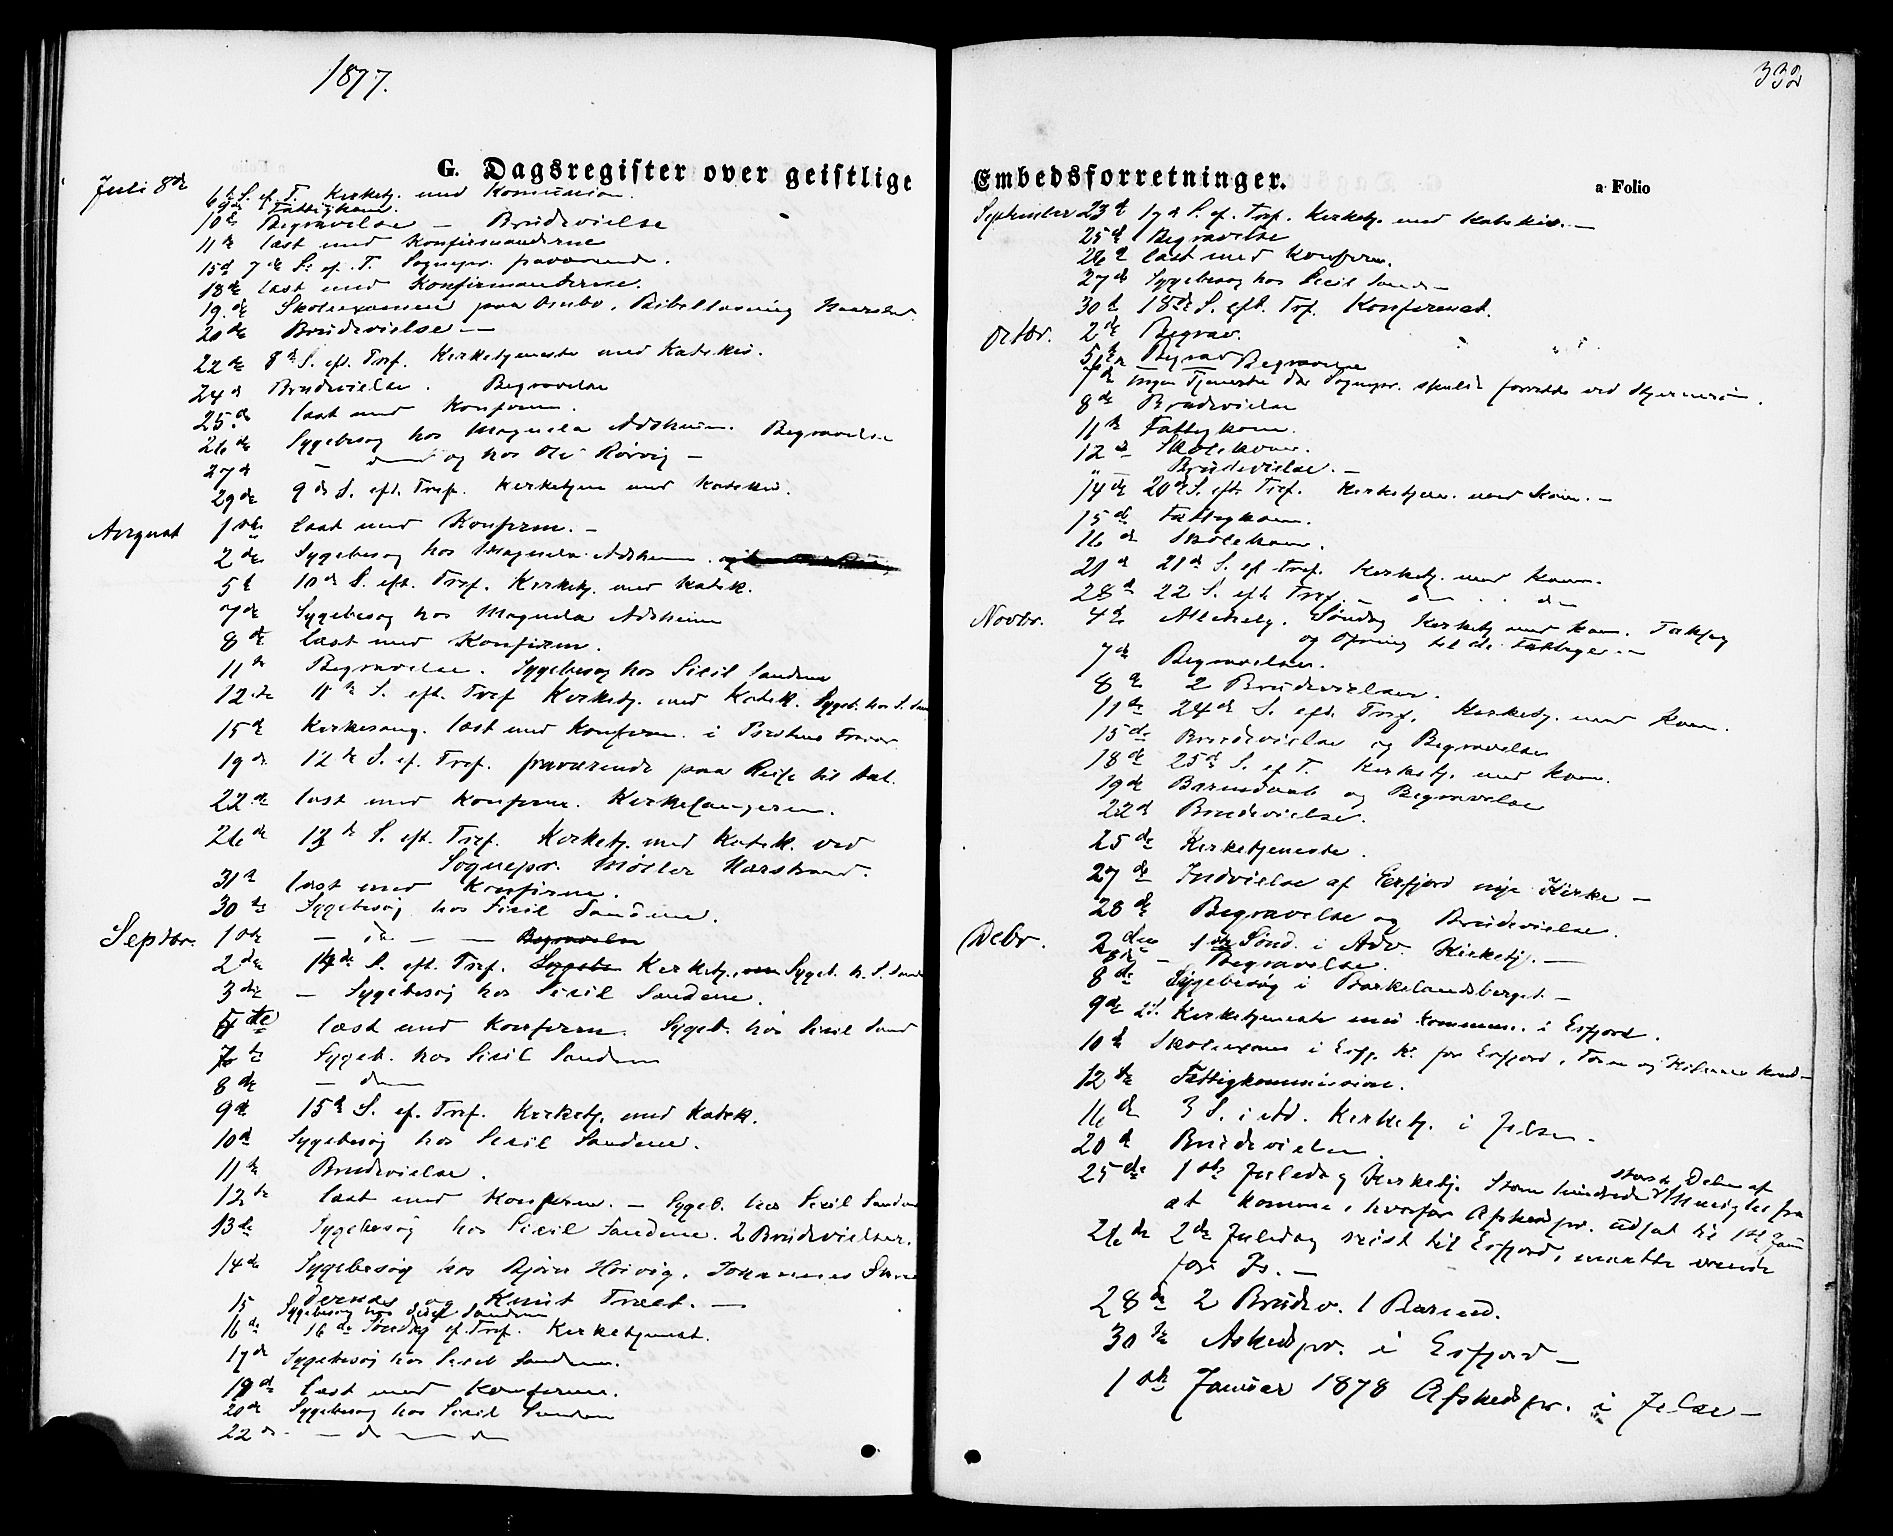 1877.
G. Dagsregister over geistlige
Juli 8de 6te S. ef. T. Kirketj. med Komunion
9de Fattigkom.
10de Begravelse – Brudevielse
11te læst med Konfirmanderne
15d 7de S. ef. T. Sognepr. fraværende.
18de læst med Konfirmanderne.
19.de Skoleexamen paa Ombo. Bibellæsning
20de Brudevielse —
22de 8de S. eft. Tref. Kirketjeneste med Katekis.
24de Brudevielse. Begravelse
25de læst med Konfirm.
26de Sygebesøg hos Magnela Adsheim. Begravelse
27de – og hos Ole Rørvig –
29de 9de S. eft. Tref. Kirketjen med Katekis.
August 1ste læst med Konfirm. –
2de Sygebesøg hos Magnela Adsheim.
5te 10de S. eft. Tref. Kirketj. med Katek.
7de Sygebesøg hos Magnela Adsheim
8de læst med Konfirm.
11te Begravelse. Sygebesøg hos Sicil Sandene
12te 11te S. eft. Tref Kirketj. med Katek. Sygeb. hos S. San
15de Kirkesang. læst med Konfirm. i
19de 12te S. ef. Tref. fraværende paa Reise til
22de læst med Konfirm. Kirkesangeren.
26de 13de S. eft. Tref. Kirketj. med Katek. ved
Sognepr. Møller Nærstrand.
31te læst med Konfirm.
30te Sygebesøg hos Sicil Sandene.
Septbr. 1ste — do — — Begravelse
2de 14de S. eft. Tref. Sygebe Kirketj. Sygeb. h. S. Sand
3die — Sygebesøg hos Sicil Sandene.
5te læst med Konfirm. Sygeb. hos Sicil Sand
7de Sygeb. hos Sicil Sandene
8de
9de 15de S. ef. Tref. Kirketj. med Katek.
10de Sygebesøg hos Sicil Sandene.
11te Brudevielse.
12te læst med Konfirm. — Sygeb. hos Sicil Sandene
13de Sygebesøg hos Sicil Sandene. 2 Brudevielser.
14de Sygebesøg hos Bjørn Høivig, Johannes
og Knut
15 Sygebesøg hos Sicil Sandene
16de 16de Søndag ef. Tref. Kirketjenest.
17de Sygebesøg hos Sicil Sandene.
19de læst med Konfirm.
20de Sygebesøg hos Sicil Sandene
22de
332
Embedsforretninger.
a Folio
September 23de 17de S. ef. Tref. Kirketj. med Katekis. —
25de Begravelse
26de læst med Konfirm.
27de Sygebesøg hos Sicil Sand. –
30te 18de S. eft. Tref. Konfirmat.
Octbr. 2de Begrav.
5te Begrav Begravelse
7de ingen Tjeneste da Sognepr. skulde forrette ved Hjermerøen.
8de Brudevielse
11te Fattigkom.
12te Skolekom.
" Brudevielse. –
14de 20de S. eft. Tref. Kirketjen. med Kom. –
15de Fattigkom.
16de Skolekom.
21de 21de S. ef Tref. Kirketj. med Kom.
28de 22 S. eft Tref.
Novbr. 4de Allehelg. Søndag Kirketj med Kom. Taksig
og Ofring til de Fattige. –
7de Begravelser.
8de 2 Brudevielser.
11te 24de S. eft. Tref. Kirketj. med Kom.
15de Brudevielse og Begravelse
18de 25de S. ef T. Kirketj. med Kom.
19de Barnedaab og Begravelse
22de Brudevielse.
25de Kirketjeneste.
27de Indvielse af Eerfjord nye Kirke —
28de Begravelse og Brudevielse.
Debr. 2den 1ste Sønd. i Adv. Kirketj. —
6te – Begravelse.
8de Sygebesøg i Barkelandsberget –
9de 2 S. Kirketjeneste med Kommun. i Erfjord.
10de Skoleexam i Erfj. K. for Erfjord,
12te Fattigkommission.
16de 3 S. i Ad. Kirketj. i Jelse. –
20de Brudevielse
25de 1ste Juledag Kirketj. Storm hindrede største Delen af Menigh. fra
at komme, hvorfor Afskedspr. udsat til 1ste Jan
26de 2de Juledag reist til Erfjord, maatte vende
for Is. —
28de 2 Brudev. 1 Barned.
30te Askedspr. i Erfjord —
1ste Januar 1878 Afskedspr. i Jelse —